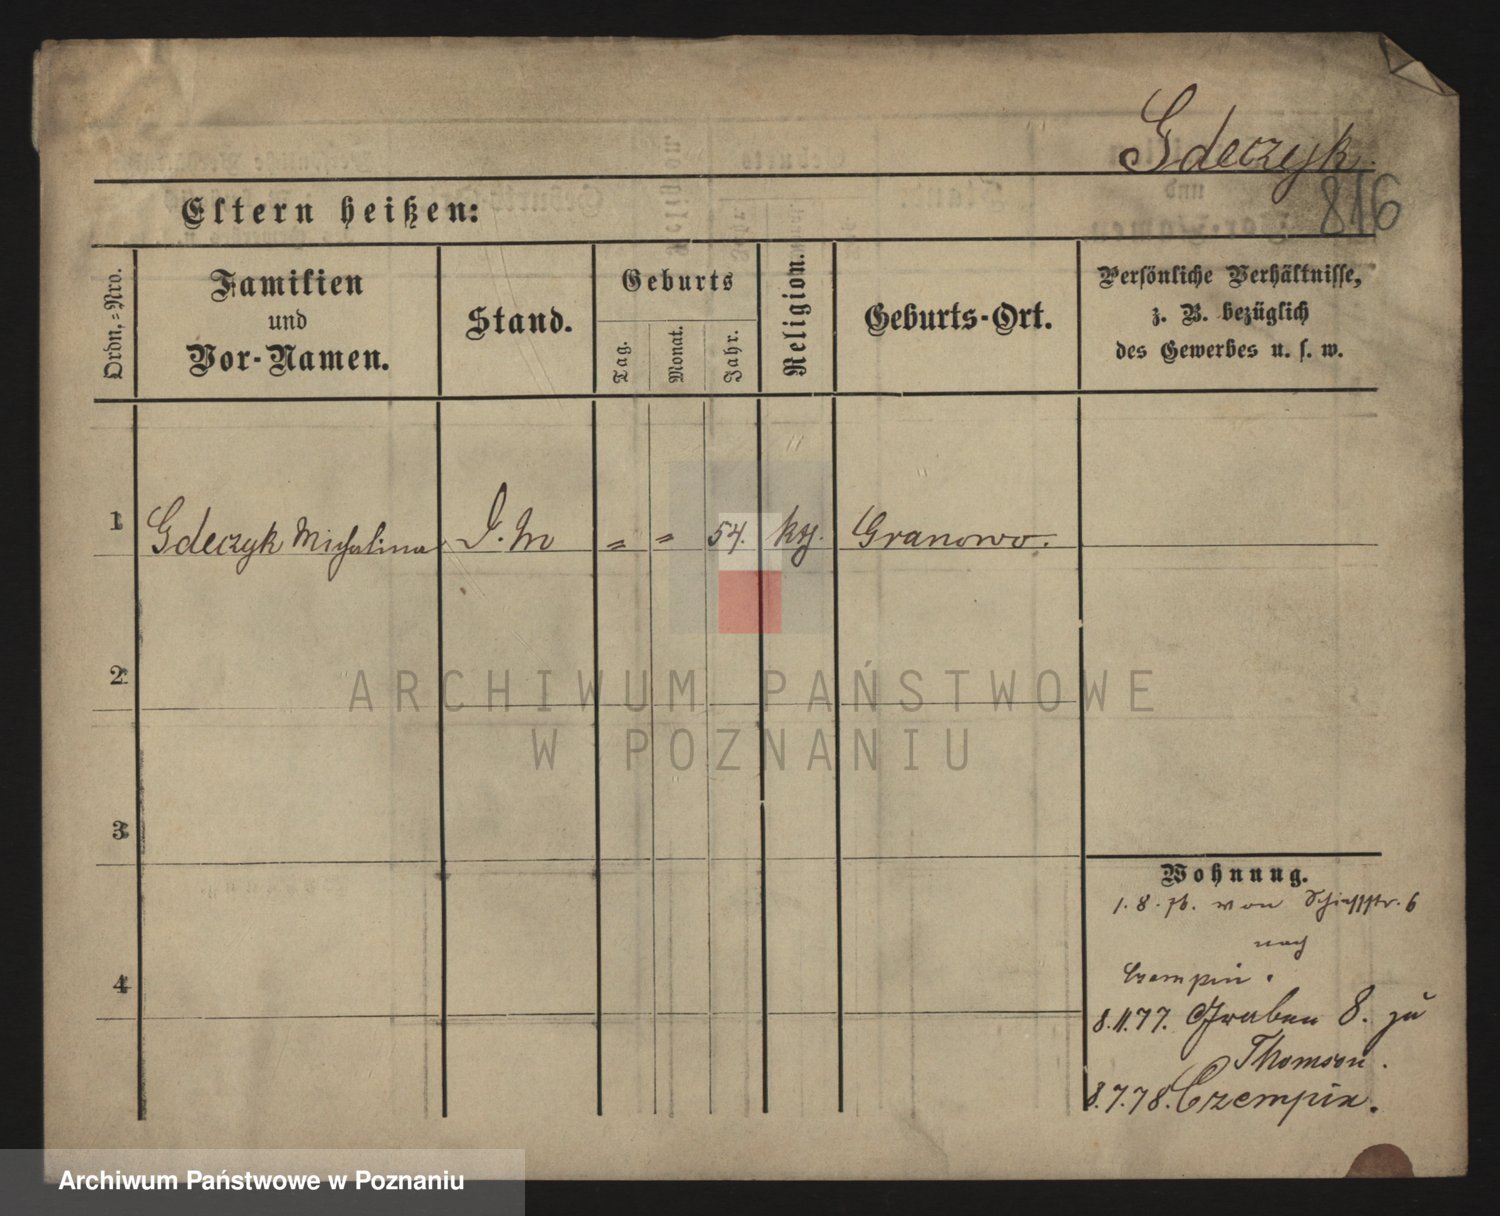 Gdeczyk.
816
Eltern heißen:
Ordn.=Nro.
Familien
und
Vor-Namen.
Stand.
Geburts
Tag.
Monat.
Jahr.
Religion.
Geburts-Ort.
Persönliche Verhältnisse,
z. B. bezüglich
des Gewerbes u. s. w.
1 Gdeczyk Michalina D. M " " 54. kth. Granowo.
2
3
4
Wohnung.
1. 8. 76. von Schießstr. 6
nach
Czempin.
8.11.77. Graben 8. zu
Thomson.
8.7.78. Czempin.
ARCHIWUM PAŃSTWOWE
W POZNANIU
Archiwum Państwowe w Poznaniu